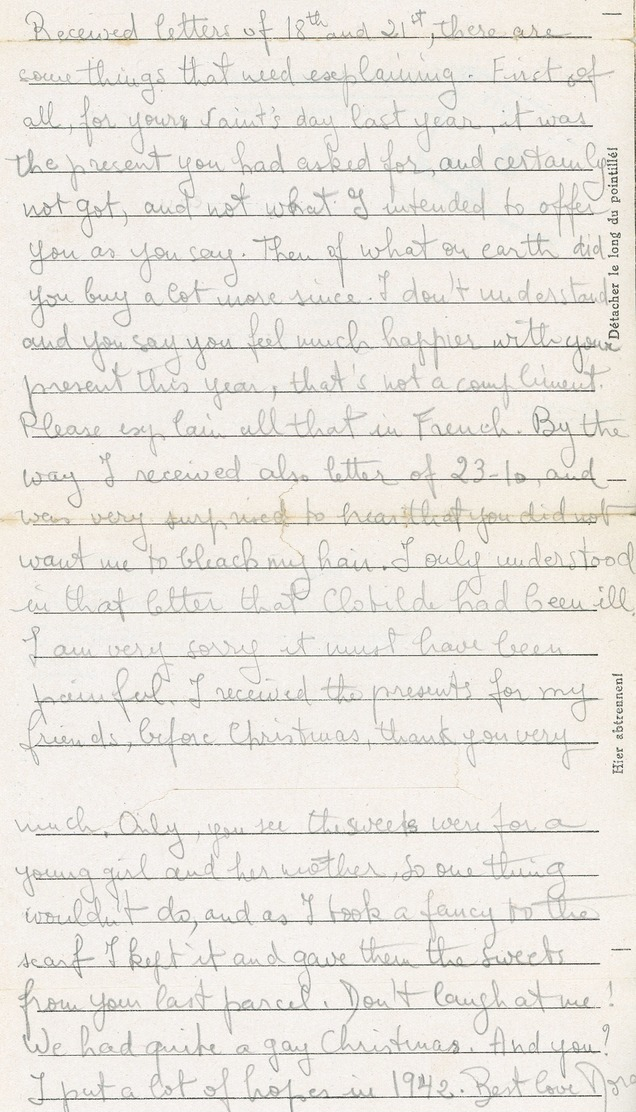 Received letters of 18th and 21st, there are
some things that need explaining. First of
all, for yours Saint's day last year, it was
the present you had asked for, and certainly
not got, and not what I intended to offer
you as you say. Then of what on earth did
you buy a lot more since. I don't understand
and you say you feel much happier with your
present this year, that's not a compliment.
Please explain all that in French. By the
way I received also letter of 23-10, and
was very surprised to hear that you did not
want me to bleach my hair. I only understood
in that letter that Clotilde had been ill.
I am very sorry it must have been
painful. I received the presents for my
friends, before Christmas, thank you very
much. Only, you see the sweets were for a
young girl and her mother, so one thing
wouldn't do, and as I took a fancy to the
scarf I kept it and gave them the sweets
from your last parcel. Don't laugh at me!
We had quite a gay Christmas. And you?
I put a lot of hopes in 1942. Best love Dora
Détacher le long du pointillé!
Hier abtrennen!